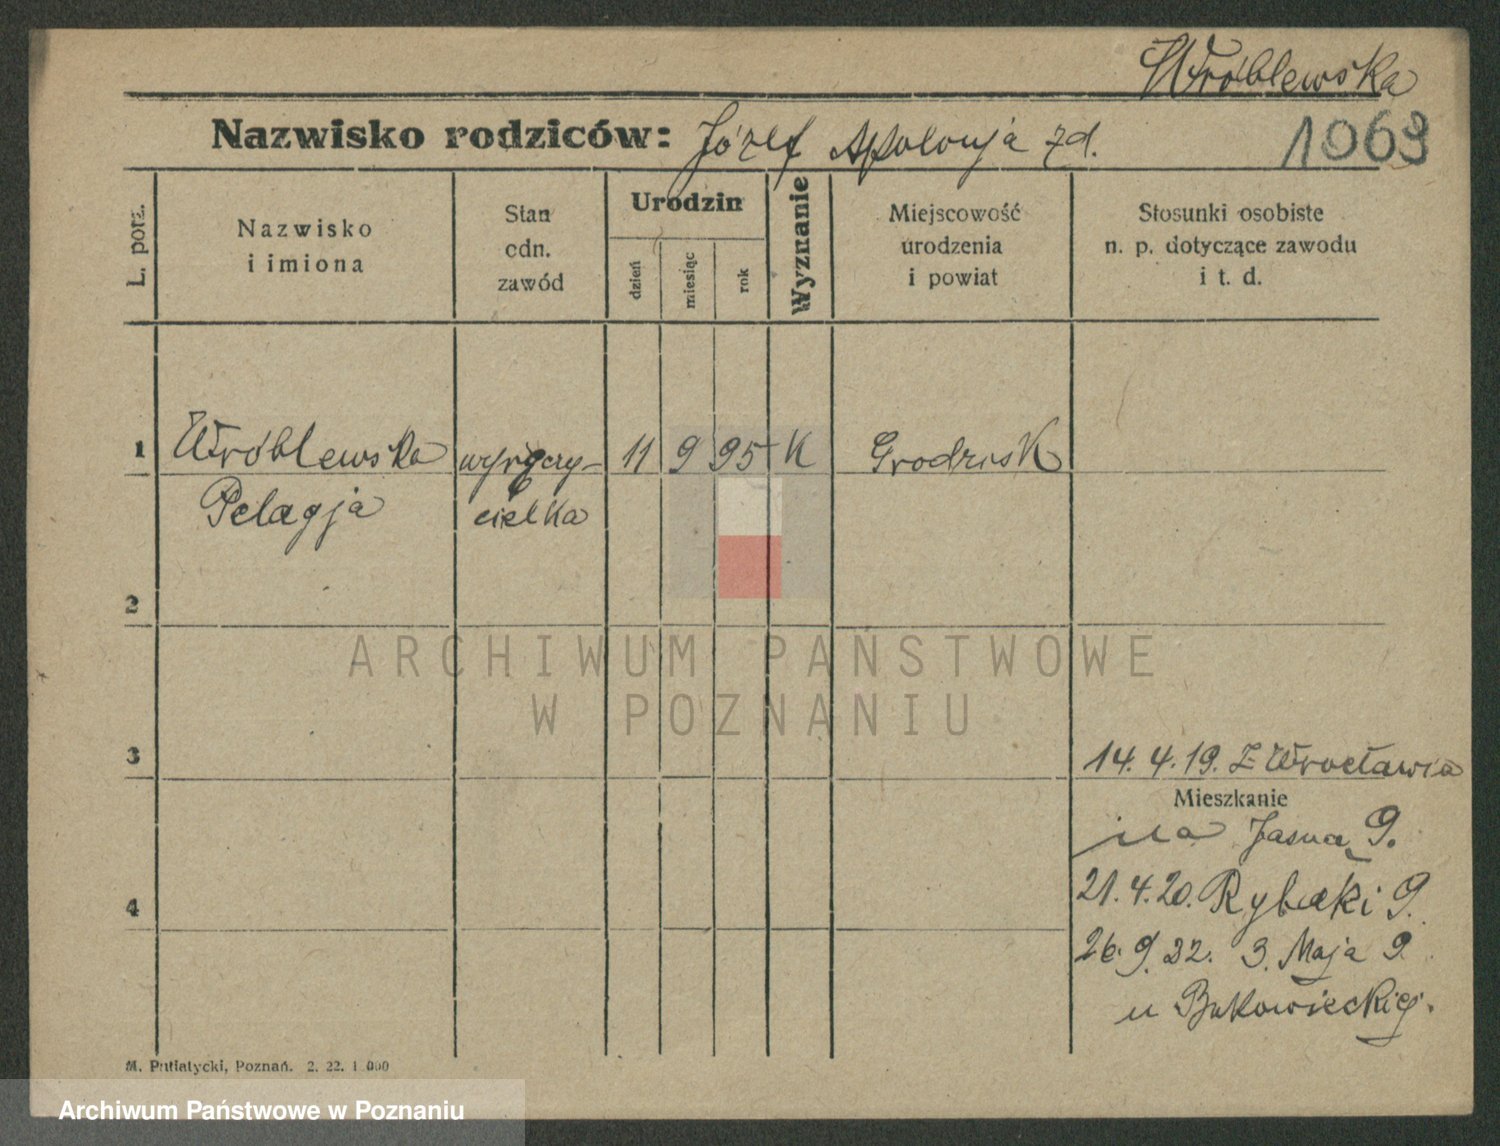 Wróblewska
Nazwisko rodziców: Józef Apolonja zd.
1069
L. porz.
Nazwisko
i imiona
Stan
cdn.
zawód
Urodzin
dzień
miesiąc
rok
Wyznanie
Miejscowość
urodzenia
i powiat
Stosunki osobiste
n. p. dotyczące zawodu
i t. d.
1 Wróblewska wyręczy- 11 9 95 K Grodzisk
Pelagja cielka
2
ARCHIWUM PAŃSTWOWE
W POZNANIU
3 14. 4. 19. z Wrocławia
Mieszkanie
na Jasna 9.
21. 4. 20. Rybaki 9.
4
26. 9. 22. 3. Maja 9
u Bukowieckiej.
M. Putiatycki, Poznań. 2. 22. 1 000
Archiwum Państwowe w Poznaniu